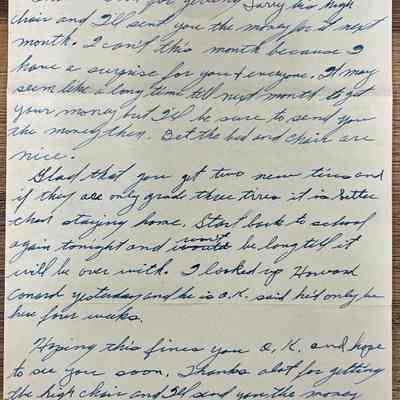 for getting Larry his high
chair and I'll sent you the money for it next
month. I can't this month because I
have a surprise for you & everyone. It may
seem like a long time till next month to get
your money but I'll be sure to send you
the money then. Bet the bed and chair are
nice.
Glad that you got two new tires and
if they are only grade three tires it is better
than staying home. Start back to school
again tonight and would won't be long till it
will be over with. I looked up Howard
Conard yesterday and he is O.K. said he'd only be
here four weeks.
Hoping this fines you O.K. and hope
to see you soon. Thanks alot for getting
the high chair and I'll send you the money